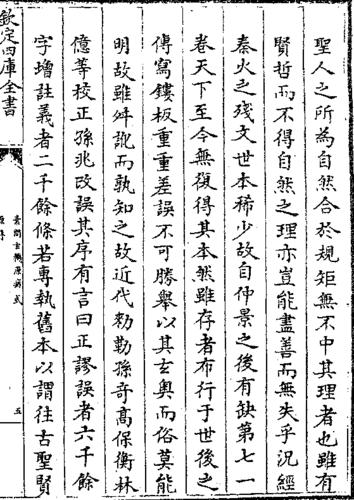 聖人之所為自然合於規矩無不中其理者也雖有
賢哲而不得自然之理亦豈能盡善而無失乎況經
秦火之殘文世本稀少故自仲景之後有缺第七一
卷天下至今無復得其本然雖存者布行于世後之
傳寫鏤板重重差誤不可勝舉以其玄奧而俗莫能
明故雖舛訛而孰知之故近代勑勒孫奇高保衡林
億等校正孫兆改誤其序有言曰正謬誤者六千餘
字增註義者二千餘條若專執舊本以謂往古聖賢
欽定四庫全書
素問玄機原病式
原序
五